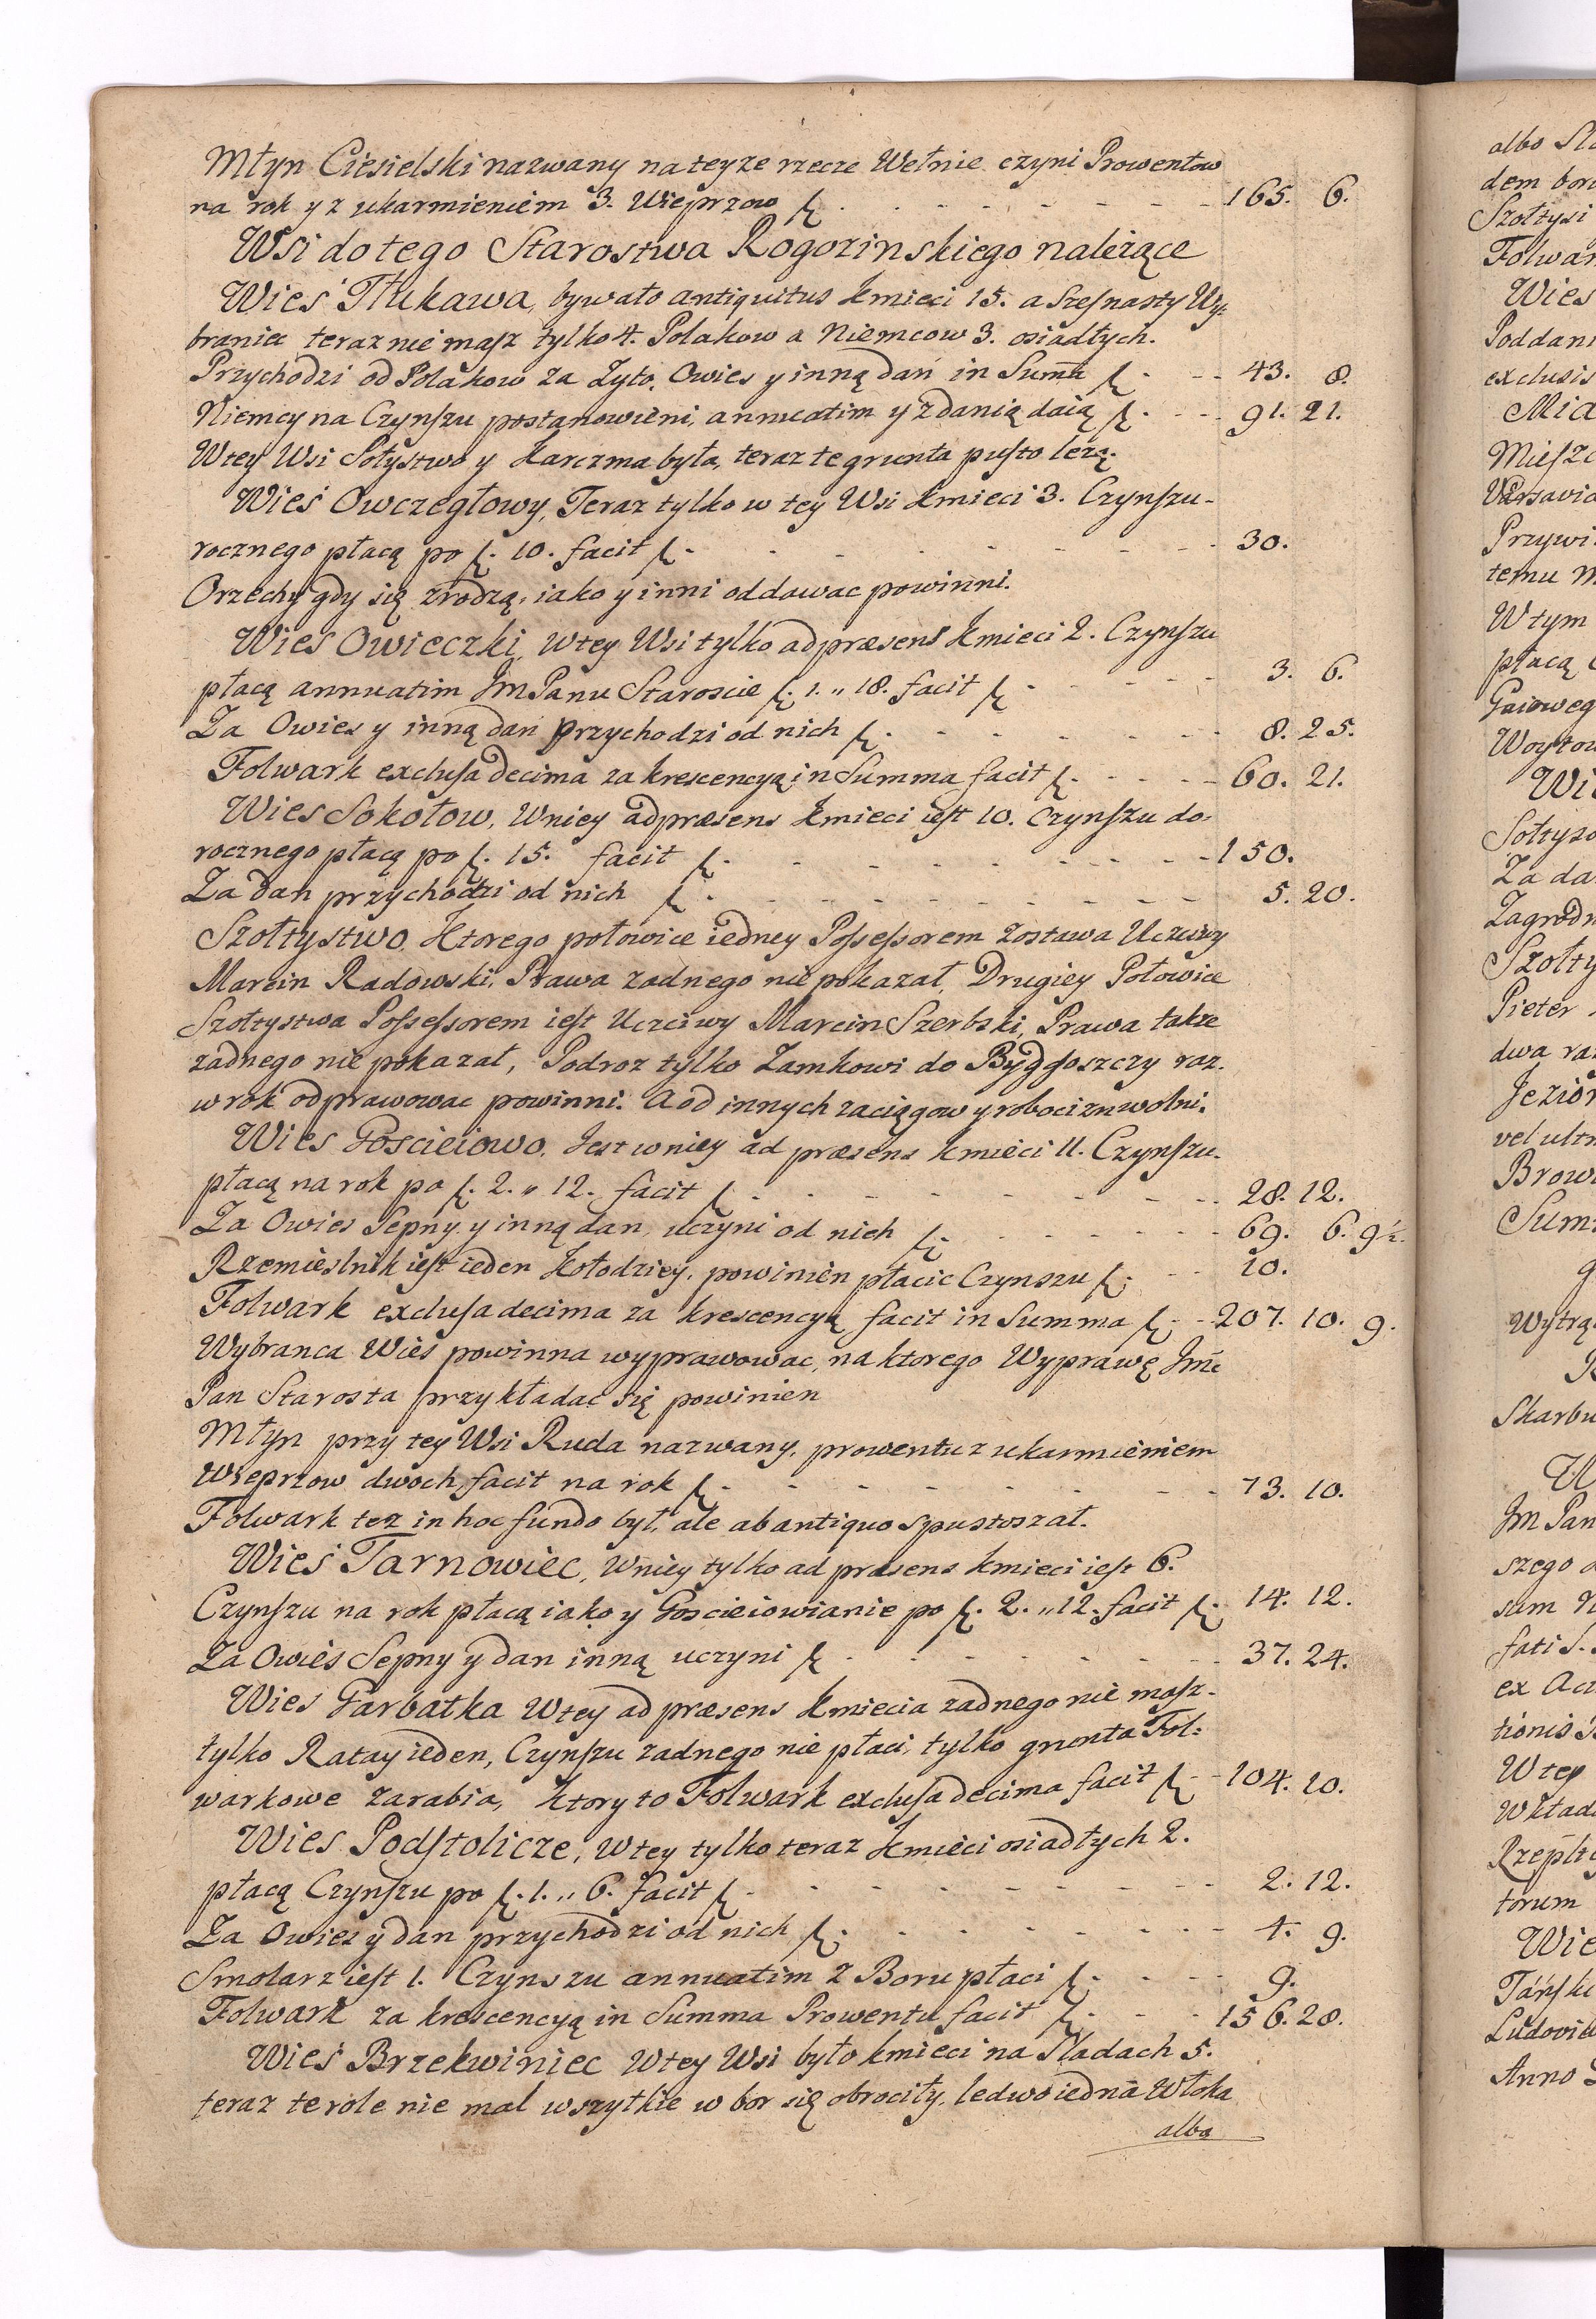 Młyn Ciesielski nazwany na teyze rzecze Wełnie czyni Prowentow
na rok y z ukarmieniem 3. Wieprzow f. 165. 6.
Wsi do tego Starostwa Rogozinskiego naleźące
Wieś Tłukawa, bywało antiquitus kmieci 15. a Szesnasty Wy-
braniec teraz nie masz tylko 4. Polakow a Niemcow 3. osiadłych.
Przychodzi od Polakow za Zyto, Owies y inną dań in Suma f. 43. 8.
Niemcy na Czynszu postanowieni, annuatim y z danią daią f. 91. 21.
W tey Wsi Sołystwo y Karczma była, teraz te grunta pusto lezą.
Wieś Owczegłowy, Teraz tylko w tey Wsi kmieci 3. Czynszu
rocznego płacą po f. 10. facit f. 30.
Orzechy gdy się zrodzą, iako y inni oddawac powinni.
Wies Owieczki, w tey Wsi tylko ad præsens kmieci 2. Czynszu
płacą annuatim Jm Panu Staroscie f. 1. „ 18. facit f. 3. 6.
Za Owies y inną dań przychodzi od nich f. 8. 25.
Folwark exclusa decima za krescencyą in Summa facit f. 60. 21.
Wies Sokołow, W niey ad præsens kmieci iest 10. Czynszu do-
rocznego płacą po f. 15. facit f. 150.
Za dan przychodzi od nich f. 5. 20.
Szołtystwo, Ktorego połowice iedney Possessorem zostawa Uczciwy
Marcin Radowski, Prawa zadnego nie pokazał, Drugiey Połowice
Szołtystwa Possessorem iest Uczciwy Marcin Szerbski, Prawa takze
zadnego nie pokazał, Podroz tylko Zamkowi do Bydgoszczy raz
w rok odprawowac powinni. A od innych zaciągow y robocizn wolni.
Wies Gościeiowo, Jest w niey ad præsens kmieci 11. Czynszu
płacą na rok po f. 2. „ 12. facit f. 28. 12.
Za Owies Sepny y inną dan, uczyni od nich f. 69. 6. 9½.
Rzemieslnik iest ieden Kołodziey, powinien płacic Czynszu f. 10.
Folwark exclusa decima za krescencyą facit in Summa f. 207. 10. 9.
Wybranca Wieś powinna wyprawowac, na ktorego Wyprawę Jmc
Pan Starosta przykładac się powinien
Młyn przy tey Wsi Ruda nazwany, prowentu z ukarmieniem
Wieprzow dwoch facit na rok f. 73. 10.
Folwark tez in hoc fundo był, ale ab antiquo spustoszał.
Wieś Tarnowiec, W niey tylko ad præsens kmieci iest 6.
Czynszu na rok płacą iako y Gościeiowianie po f. 2. „ 12. facit f. 14. 12.
Za Owies Sepny y dan inną uczyni f. 37. 24.
Wies Garbatka W tey ad præsens kmiecia zadnego nie masz
tylko Ratay ieden, Czynszu zadnego nie płaci, tylko grunta Fol-
warkowe zarabia, Ktory to Folwark exclusa decima facit f. 104. 10.
Wies Podstolicze, W tey tylko teraz kmieci osiadłych 2.
płacą Czynszu po f. 1. „ 6. facit f. 2. 12.
Za Owies y dan przychodzi od nich f. 4. 9.
Smolarz iest 1. Czynszu annuatim z Boru płaci f. 9.
Folwark za krescencyą in Summa Prowentu facit f. 156. 28.
Wieś Brzekwiniec W tey Wsi było kmieci na Sladach 5.
teraz te role nie mal wszytkie w bor się obrociły, ledwo iedna Włoka
albo
albo
dem
Szołtysi
Wies
exclusis
Przywi
temu
W tym
płacą
Za
Pieter
dwa
vel
Skarbu
Jm Pan
szego
ex
W tey
torum
Anno